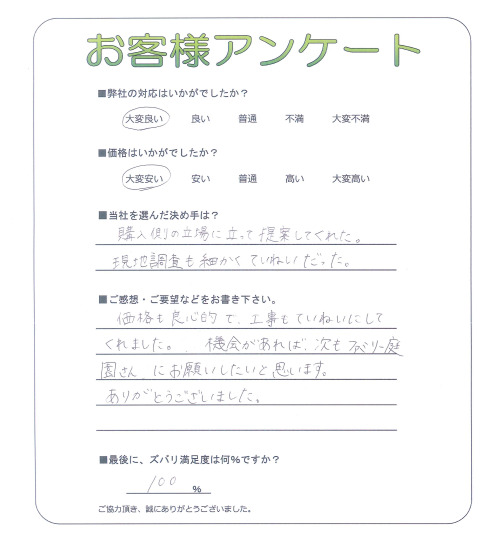 お客様アンケート
■弊社の対応はいかがでしたか？
大変良い 良い 普通 不満 大変不満
■価格はいかがでしたか？
大変安い 安い 普通 高い 大変高い
■当社を選んだ決め手は？
購入側の立場に立って提案してくれた。
現地調査も細かくていねいだった。
■ご感想・ご要望などをお書き下さい。
価格も良心的で、工事もていねいにして
くれました。、機会があれば、次もファミリー庭
園さん、にお願いしたいと思います。
ありがとうございました。
■最後に、ズバリ満足度は何％ですか？
100 %
ご協力頂き、誠にありがとうございました。